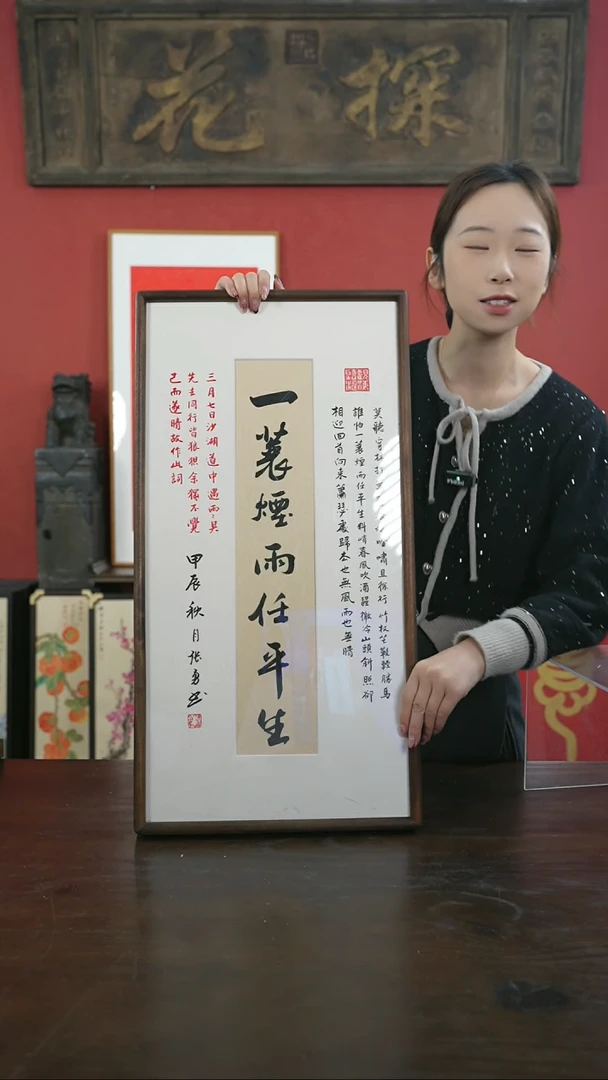 探花
莫聽穿林打 嘯且徐行竹杖芒鞋輕勝馬
誰怕一蓑煙雨任平生料峭春風吹酒醒微冷山頭斜照卻
相迎回首向來蕭瑟處歸去也無風雨也無晴
一蓑煙雨任平生
三月七日沙湖道中遇雨：具
先去同行皆狼狽余獨不覺
已而遂晴故作此詞
甲辰秋月张勇书